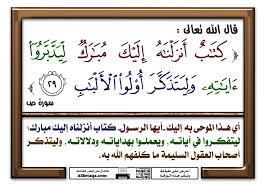 قال الله تعالى :
كِتَٰبٌ أَنزَلْنَٰهُ إِلَيْكَ مُبَٰرَكٌ لِّيَدَّبَّرُوٓا۟
ءَايَٰتِهِۦ وَلِيَتَذَكَّرَ أُو۟لُوا۟ ٱلْأَلْبَٰبِ ٢٩
سورة ص
أي هذا الموحى به إليك -أيها الرسول- كتاب أنزلناه إليك مبارك؛
ليتفكروا في آياته، ويعملوا بهداياته ودلالاته، وليتذكر
أصحاب العقول السليمة ما كلفهم الله به.